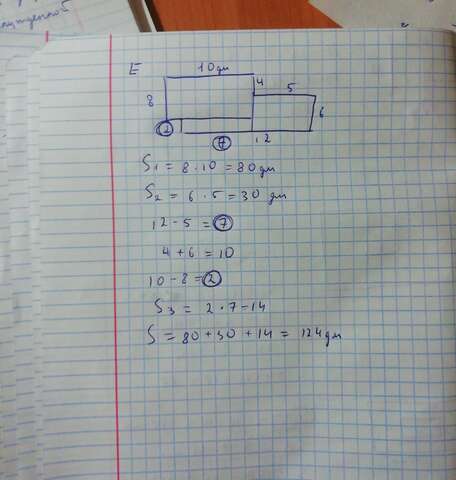 E 10 дм
4
5
8
6
2
7 12
S1 = 8 · 10 = 80 дм
S2 = 6 · 5 = 30 дм
12 - 5 = 7
4 + 6 = 10
10 - 8 = 2
S3 = 2 · 7 = 14
S = 80 + 30 + 14 = 124 дм